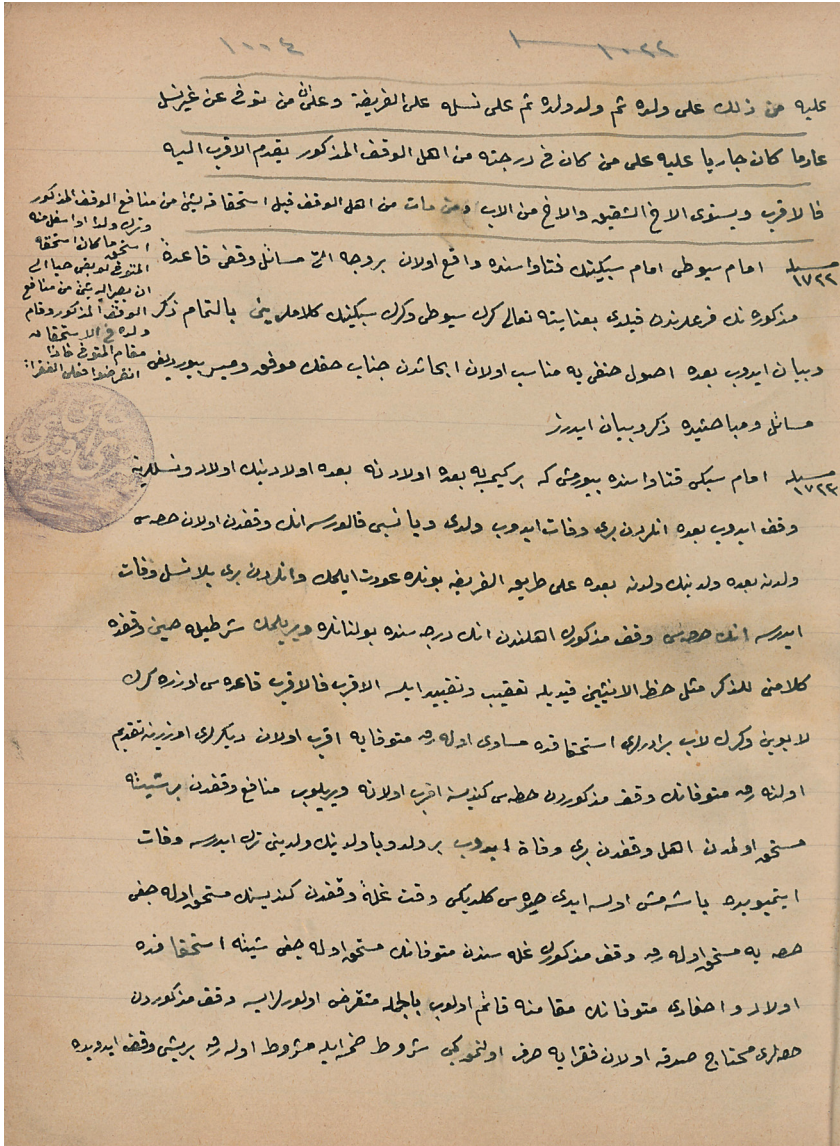 ١٠٠٤
١٠٢٢
عليه من ذلك على ولده ثم ولد ولده ثم على نسله على الفريضة وعلى ان من توفى عن غير نسل
عاد ما كان جاريا عليه على من كان فى درجته من اهل الوقف المذكور يقدم الاقرب اليه
فالاقرب ويستوى الاخ الشقيق والاخ من الاب ومن مات من اهل الوقف قبل استحقاقه لشئ من منافع الوقف المذكور
وترك ولدا او اسفل منه
استحق ما كان استحقه
المتوفى لو بقى حيا الى
ان يصير اليه شئ من منافع
الوقف المذكور وقام
ولده فى الاستحقاق
مقام المتوفى فاذا
انقرضوا فعلى الفقراء
مسئله ١٧٢٢ امام سيوطى امام سبكينك فتاواسنده واقع اولان بروجه اتى مسائل وقفى قاعدهٔ
مذكوره نك فرعلرندن قيلدى بعنايته تعالى كرك سيوطى وكرك سبكينك كلاملرينى بالتمام ذكر
وبيان ايدوب بعده اصول حنفى يه مناسب اولان ابحاثدن جناب حقك موفق وميسر بيورديغى
مسائل ومباحثيده ذكر وبيان ايدرز
مسئله ١٧٢٣ امام سبكى فتاواسنده بيورمش كه بر كيمسه يه بعده اولادنه بعده اولادينك اولاد ونسللرينه
وقف ايدوب بعده انلردن برى وفات ايدوب ولدى ويا نسبى قالورسه انك وقفدن اولان حصه سى
ولدنه بعده ولدينك ولدنه بعده على طريق الفريضه بونلره عودت ايلمك وانلردن برى بلا نسل وفات
ايدرسه انك حصه سى وقف مذكورك اهلندن انك درجه سنده بولنانلره ويريلمك شرطيله حين وقفده
كلامنى للذكر مثل حظ الانثيين قيديله تعقيب وتقييد ايلسه الاقرب فالاقرب قاعده سى اوزره كرك
لابوين وكرك لاب برادرلرى استحقاقده مساوى اوله رق متوفايه اقرب اولان ديكرلرى اوزرينه تقديم
اولنه رق متوفانك وقف مذكوردن حصه سى كنديسنه اقرب اولانه ويريلوب منافع وقفدن بر شيئه
مستحق اولمدن اهل وقفدن برى وفاة ايدوب بر ولد ويا ولدينك ولدينى ترك ايدرسه وفات
ايتميوبده ياشامش اولسه ايدى حصه سى كلديكى وقت غلهٔ وقفدن كنديسنك مستحق اوله جغى
حصه يه مستحق اوله رق وقف مذكورك غله سندن متوفانك مستحق اوله جغى شيئه استحقاقده
اولاد واحفادى متوفانك مقامنه قائم اولوب بالجمله منقرض اولورلرايسه وقف مذكوردن
حصه لرى محتاج صدقه اولان فقرايه صرف اولنمق كبى شروط ضم ايله مشروط اوله رق بر شيئى وقف ايدوبده